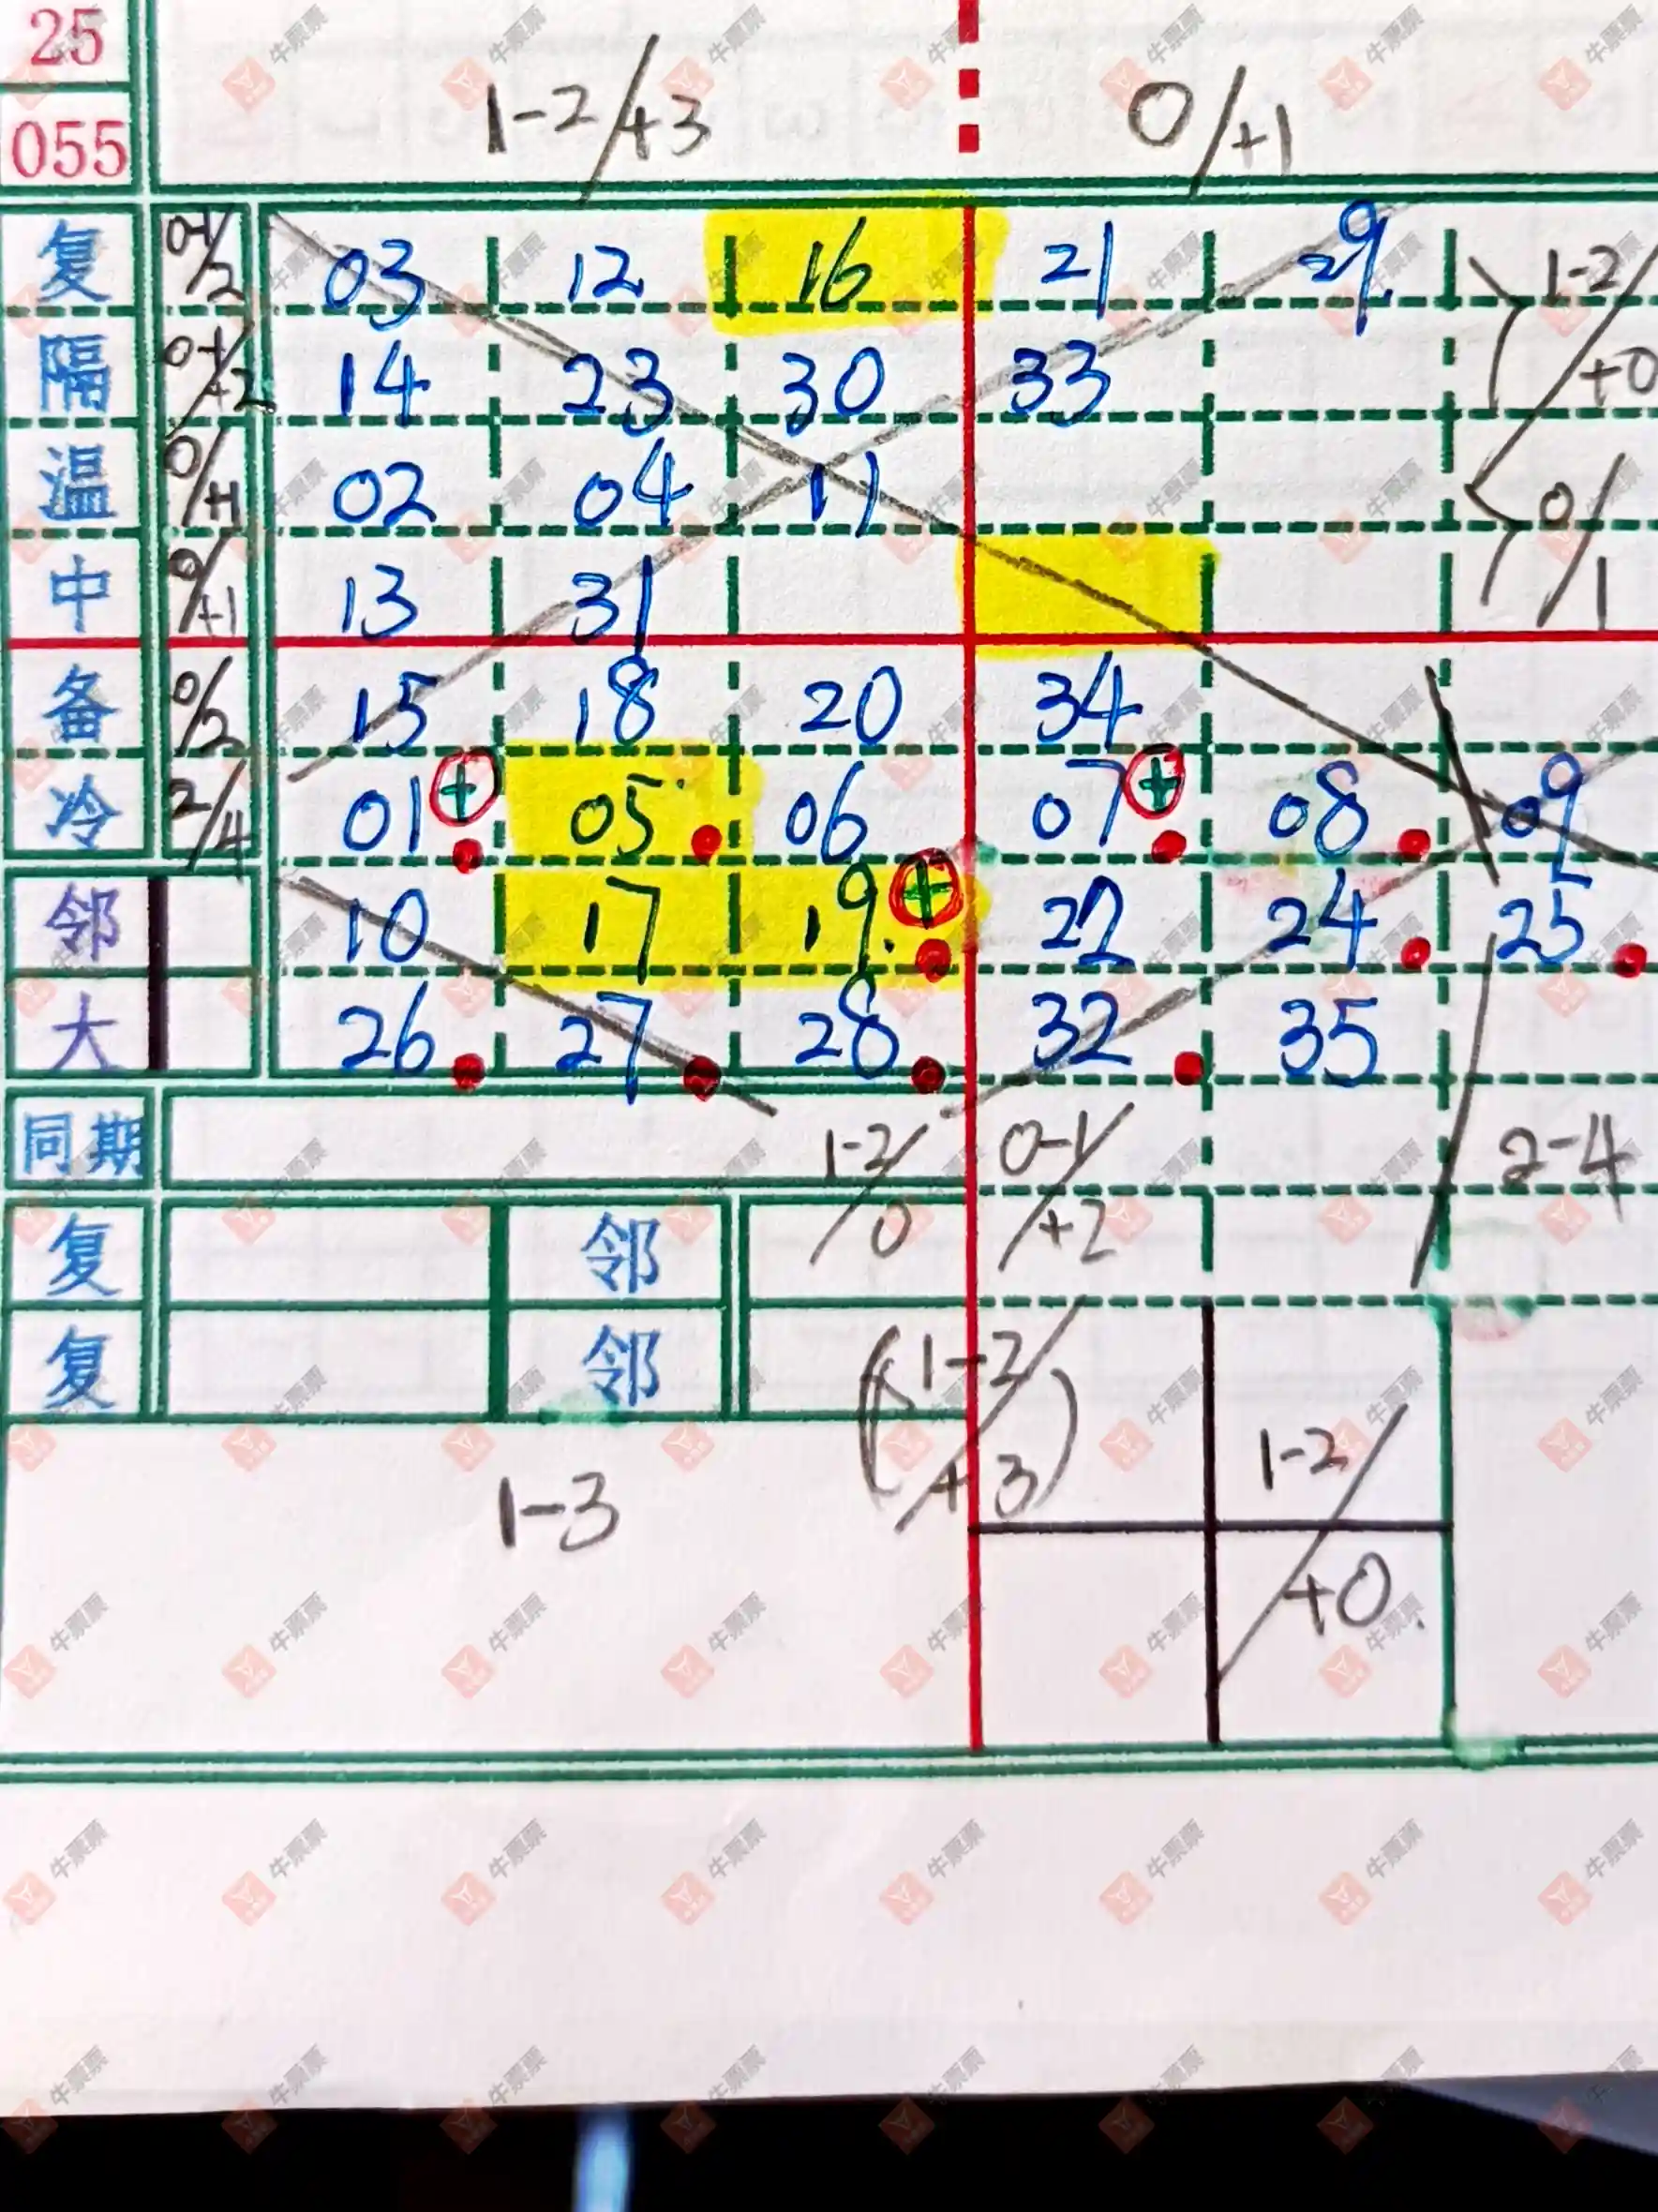 25
055
1-2/+3 0/+1
复 0-1/2 03 12 16 21 29 1-2/+0
隔 0-1/+2 14 23 30 33
温 0/+1 02 04 11 0/1
中 0/+1 13 31
备 0/2 15 18 20 34
冷 2/4 01 05 06 07 08 09
邻 10 17 19 22 24 25
大 26 27 28 32 35
同期 1-2/0 0-1/+2 2-4
复 邻
复 邻 (1-2/+3)
1-3 1-2/+0
牛票票